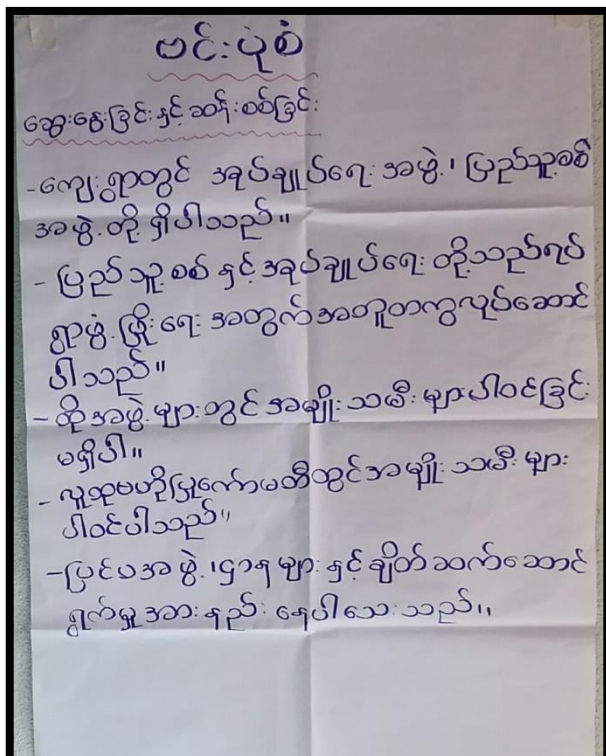 ဗင်းပုံစံ
ဆွေးနွေးခြင်းနှင့် ဆန်းစစ်ခြင်း
-ကျေးရွာတွင် အုပ်ချုပ်ရေးအဖွဲ့၊ ပြည်သူ့စစ်
အဖွဲ့ တို့ ရှိပါသည်။
- ပြည်သူ့စစ် နှင့် အုပ်ချုပ်ရေး တို့သည် ရပ်
ရွာဖွံ့ဖြိုးရေး အတွက် အတူတကွလုပ်ဆောင်
ပါသည်။
- ထိုအဖွဲ့များတွင် အမျိုးသမီးများပါဝင်ခြင်း
မရှိပါ။
- လူထုဗဟိုပြုကော်မတီတွင် အမျိုးသမီးများ
ပါဝင်ပါသည်။
-ပြင်ပအဖွဲ့၊ဌာနများနှင့် ချိတ်ဆက်ဆောင်
ရွက်မှု အားနည်းနေပါသေးသည်။